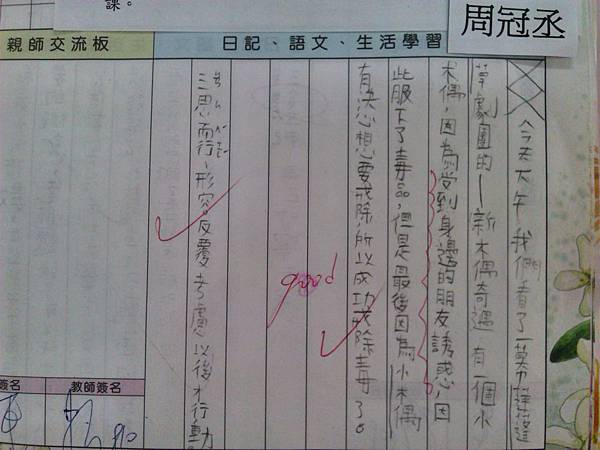 課。
周冠丞
日記、語文、生活學習
親師交流板
今天大午我們看了一莫
劇團的—新木偶奇遇有一個小
木偶,因為受到身邊的朋友誘惑,因
此服下了毒品,但是最後因為小木偶
有決心想要戒除,所以成功戒除毒了。
good
三思而行:形容反覆考慮以後才行動
簽名
教師簽名